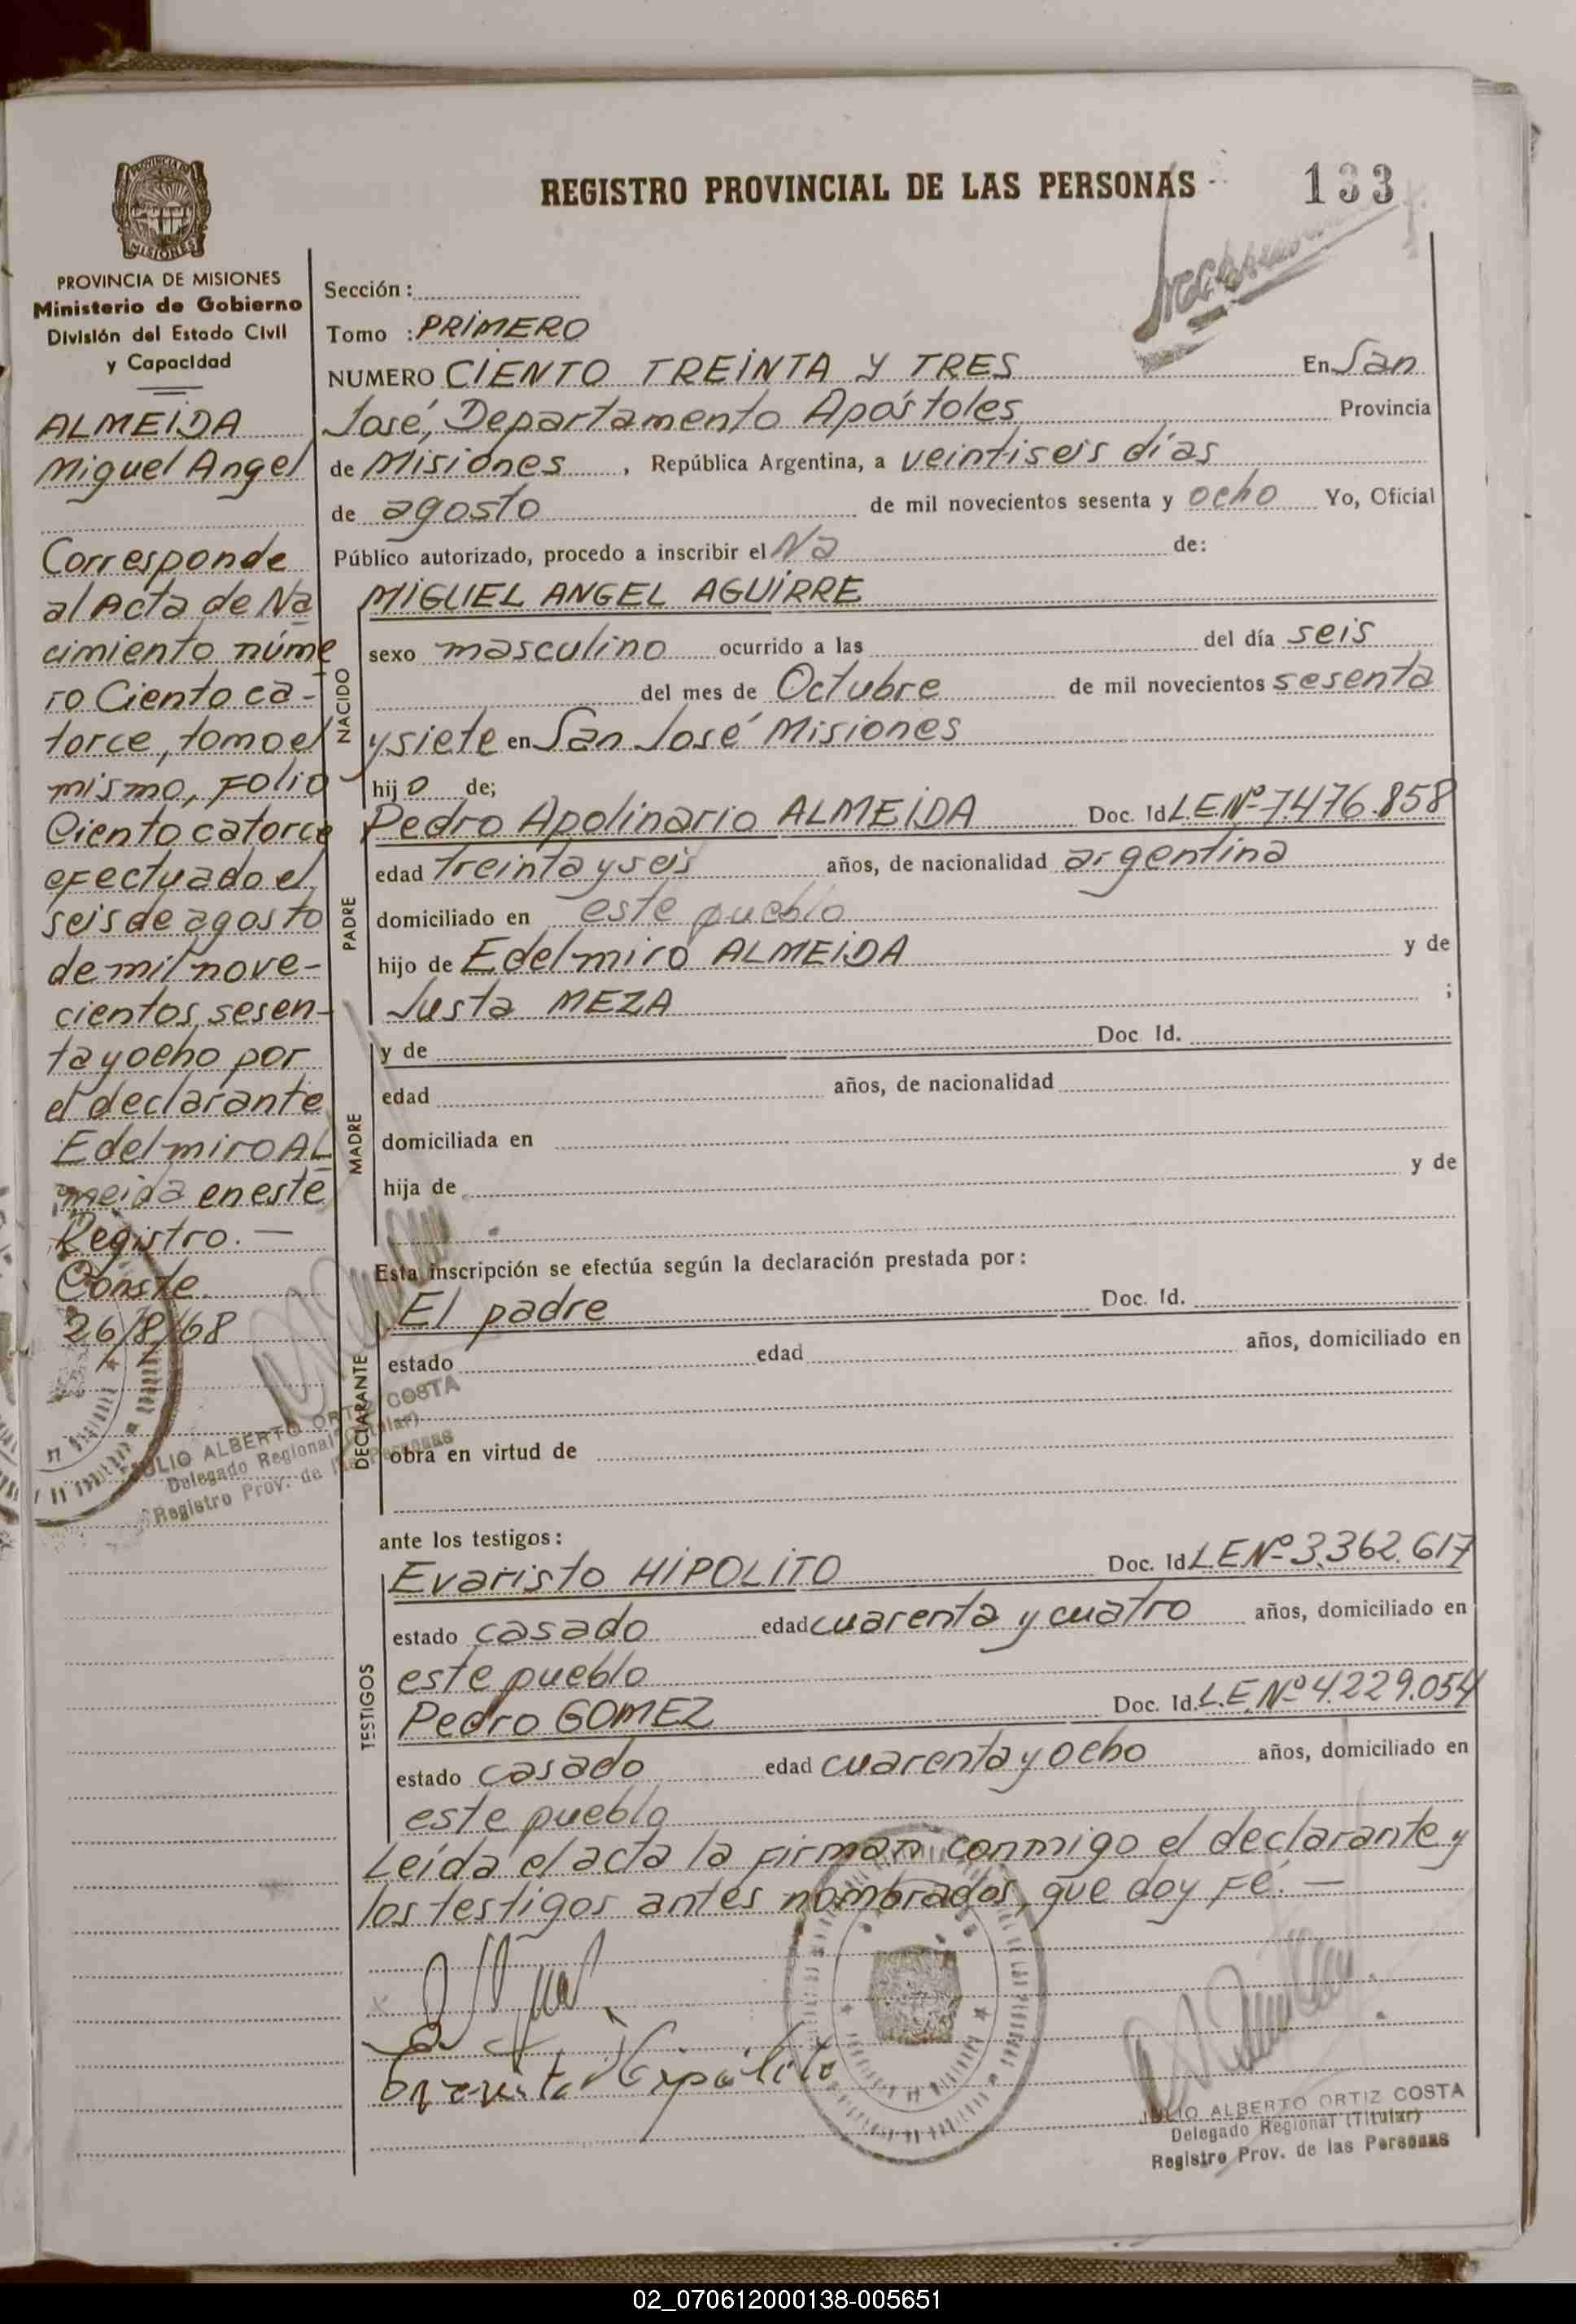 REGISTRO PROVINCIAL DE LAS PERSONAS
133
PROVINCIA DE MISIONES
MISIONES
PROVINCIA DE MISIONES
Ministerio de Gobierno
División del Estado Civil
y Capacidad
ALMEIDA
Miguel Angel
Corresponde
al Acta de Na
cimiento núme
ro Ciento ca-
torce, tomo el
mismo, Folio
Ciento catorce
efectuado el
seis de agosto
de mil nove-
cientos sesen-
ta y ocho por
el declarante
Edelmiro AL
meida en este
Registro. —
Conste
26/8/68
JULIO ALBERTO ORTIZ COSTA
Delegado Regional (Titular)
Registro Prov. de las Personas
Sección:
Tomo : PRIMERO
NUMERO CIENTO TREINTA Y TRES En San
José, Departamento Apóstoles Provincia
de Misiones , República Argentina, a veintiseis días
de agosto de mil novecientos sesenta y ocho Yo, Oficial
Público autorizado, procedo a inscribir el Na de:
NACIDO
MIGUEL ANGEL AGUIRRE
sexo masculino ocurrido a las del día seis
del mes de Octubre de mil novecientos sesenta
y siete en San José Misiones
hijo de;
PADRE
Pedro Apolinario ALMEIDA Doc. Id L.E.Nº 7.476.858
edad treinta y seis años, de nacionalidad argentina
domiciliado en este pueblo
hijo de Edelmiro ALMEIDA y de
Justa MEZA ;
MADRE
y de Doc Id.
edad años, de nacionalidad
domiciliada en
hija de y de
Esta inscripción se efectúa según la declaración prestada por:
DECLARANTE
El padre Doc. Id.
estado edad años, domiciliado en
obra en virtud de
ante los testigos:
TESTIGOS
Evaristo HIPOLITO Doc. Id L.E.Nº 3.362.617
estado casado edad cuarenta y cuatro años, domiciliado en
este pueblo
Pedro GOMEZ Doc. Id. L.E.Nº 4.229.054
estado casado edad cuarenta y ocho años, domiciliado en
este pueblo
Leída el acta la firman conmigo el declarante y
los testigos antes nombrados, que doy Fé. —
JULIO ALBERTO ORTIZ COSTA
Delegado Regional (Titular)
Registro Prov. de las Personas
02_070612000138-005651